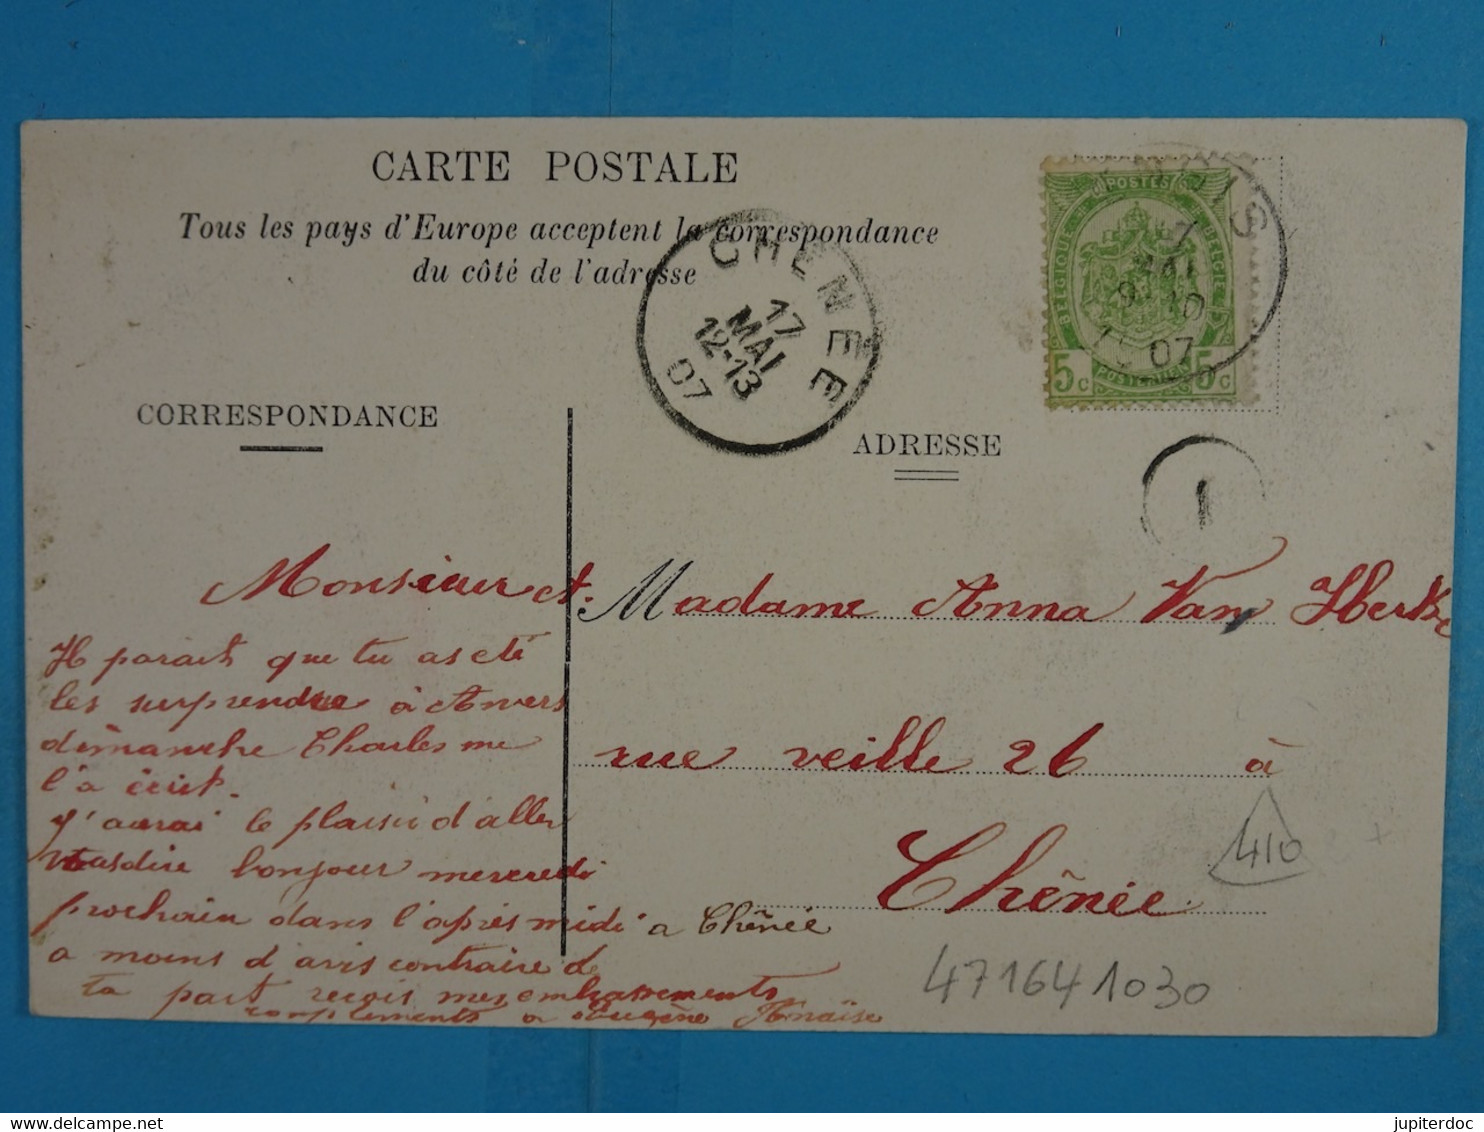 CARTE POSTALE
Tous les pays d'Europe acceptent la correspondance
du côté de l'adresse
POSTES
BELGIQUE BELGIE
5c POSTERIJEN 5c
MAI
07
CHENEE
17
MAI
12-13
07
CORRESPONDANCE
ADRESSE
1
Monsieur et Madame Anna Van
rue veille 26 à
Chênée
Il parait que tu as été
les surprendre à Anvers
dimanche Charles me
l'a écrit.
J'aurai le plaisir d'aller
dire bonjour mercredi
prochain dans l'après midi a Chênée
a moins d'avis contraire de
ta part reçois mes embrassements
compliments a Eugène Anaïse
410
471641030
jupiterdoc
www.delcampe.net